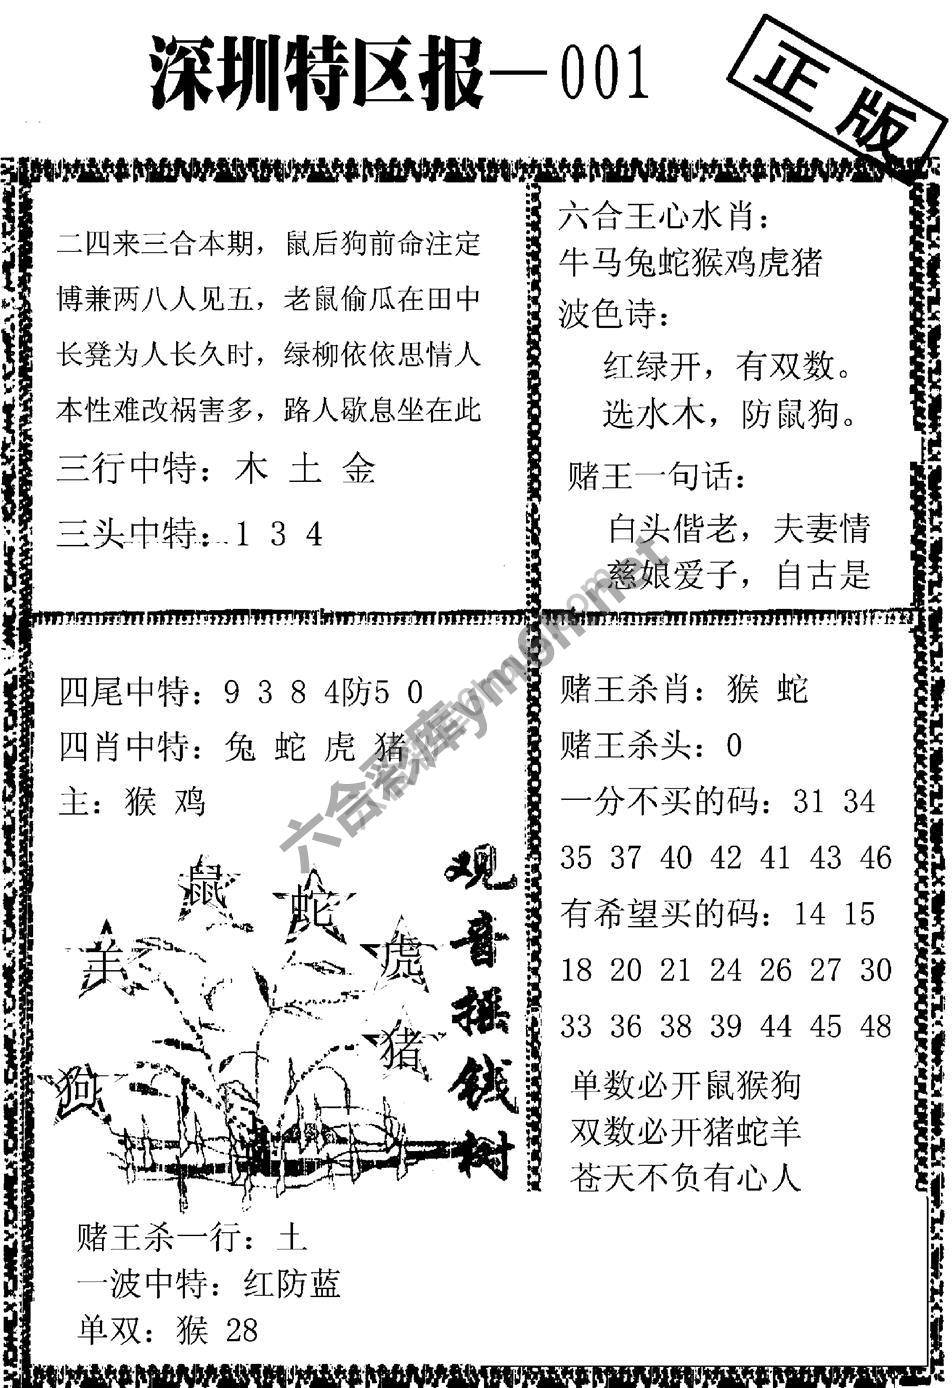 深圳特区报—001
正版
二四来三合本期，鼠后狗前命注定
博兼两八人见五，老鼠偷瓜在田中
长凳为人长久时，绿柳依依思情人
本性难改祸害多，路人歇息坐在此
三行中特：木 土 金
三头中特：1 3 4
六合王心水肖：
牛马兔蛇猴鸡虎猪
波色诗：
红绿开，有双数。
选水木，防鼠狗。
赌王一句话：
白头偕老，夫妻情
慈娘爱子，自古是
四尾中特：9 3 8 4防5 0
四肖中特：兔 蛇 虎 猪
主：猴 鸡
鼠
蛇
羊
虎
猪
狗
观音摇钱树
赌王杀肖：猴 蛇
赌王杀头：0
一分不买的码：31 34
35 37 40 42 41 43 46
有希望买的码：14 15
18 20 21 24 26 27 30
33 36 38 39 44 45 48
单数必开鼠猴狗
双数必开猪蛇羊
苍天不负有心人
赌王杀一行：土
一波中特：红防蓝
单双：猴 28
六合彩库